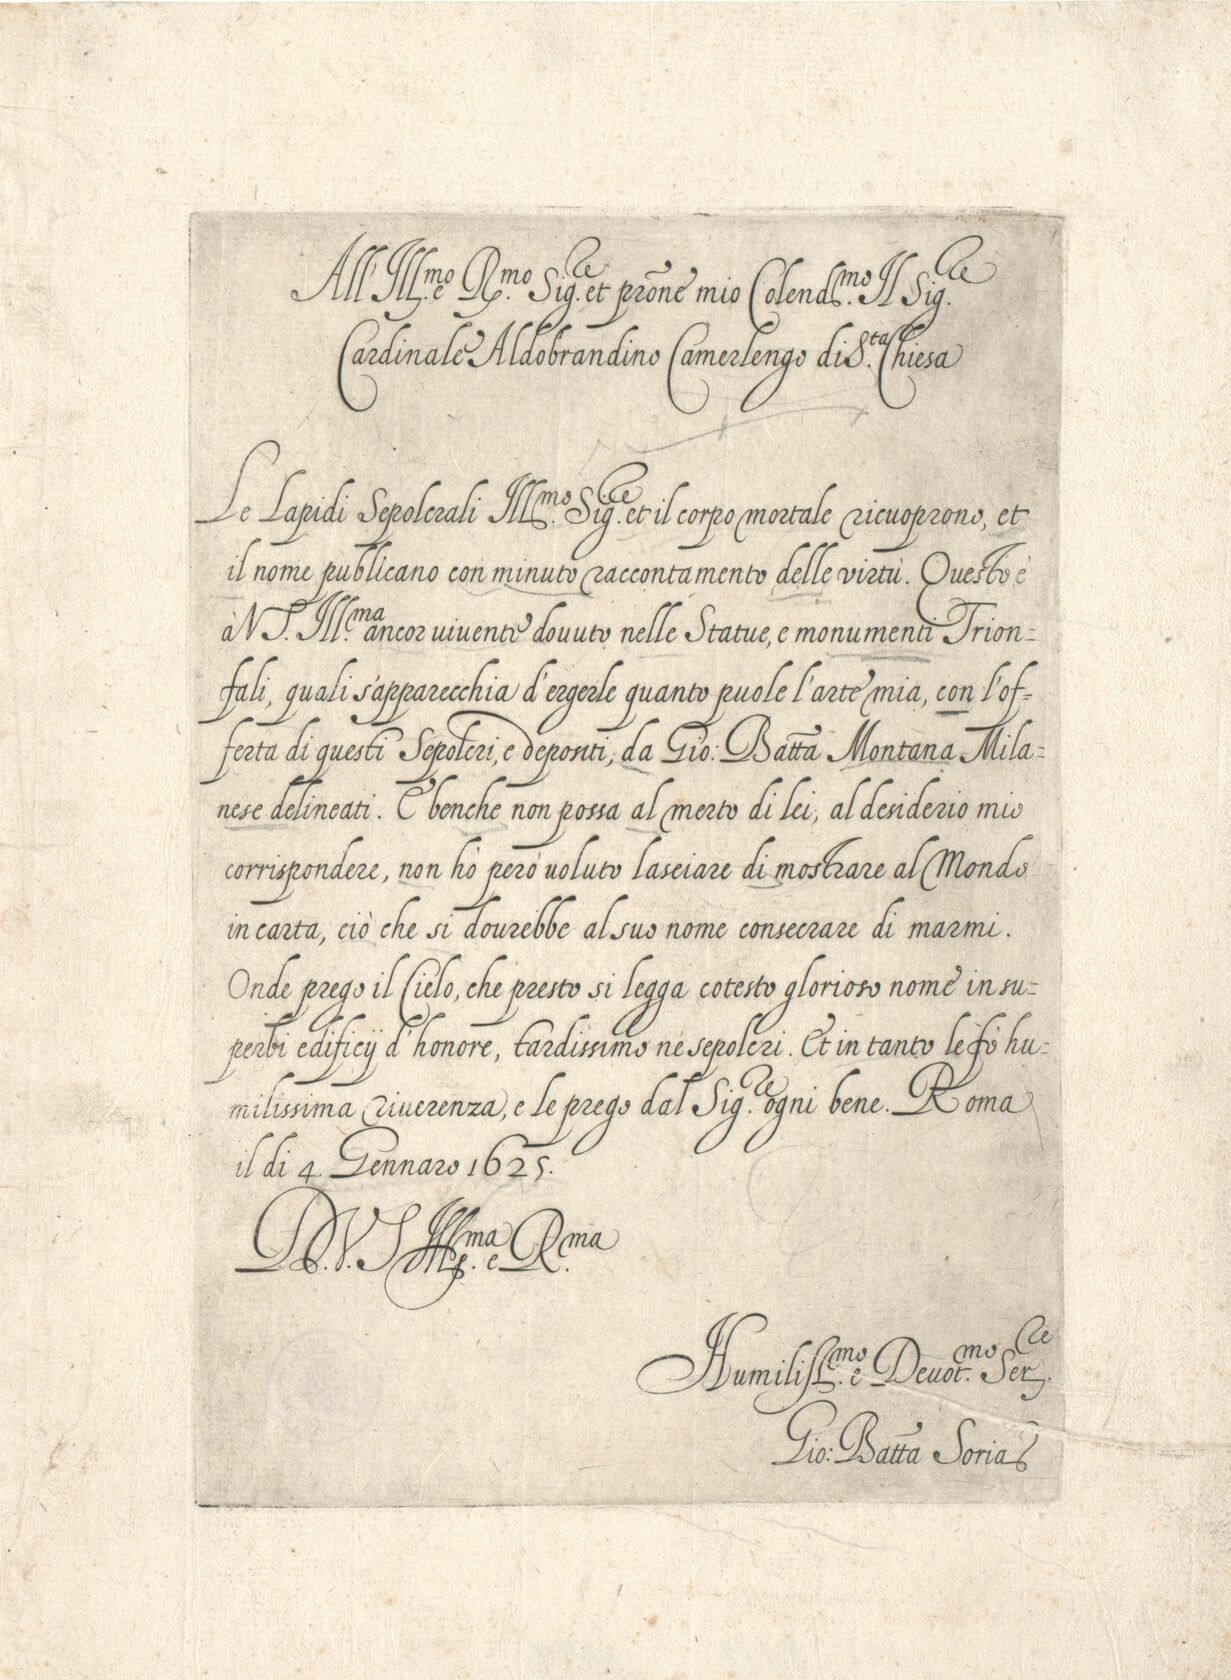 All' Ill.mo e R.mo Sig.re et prōne mio Colend.mo Il Sig.re
Cardinale Aldobrandino Camerlengo di S.ta Chiesa
Le Lapidi Sepolcrali Ill.mo Sig.re et il corpo mortale ricuoprono, et
il nome publicano con minuto raccontamento delle virtù. Questo è
à V S. Ill.ma ancor uiuente douuto nelle Statue, e monumenti Trion=
fali, quali s'apparecchia d'ergerle quanto puole l'arte mia, con l'of=
ferta di questi Sepolcri, e depositi, da Gio: Batta Montana Mila=
nese delineati. E benche non possa al merto di lei, al desiderio mio
corrispondere, non hò però uoluto lasciare di mostrare al Mondo
in carta, ciò che si dourebbe al suo nome consecrare di marmi.
Onde prego il Cielo, che presto si legga cotesto glorioso nome in su=
perbi edificij d'honore, tardissimo ne sepolcri. Et in tanto le fò hu=
milissima riuerenza, e le prego dal Sig.re ogni bene. Roma
il di 4. Gennaro 1625.
D. V. S Ill.ma e R.ma
Humiliss.mo e Deuot.mo Ser.re
Gio: Batta Soria